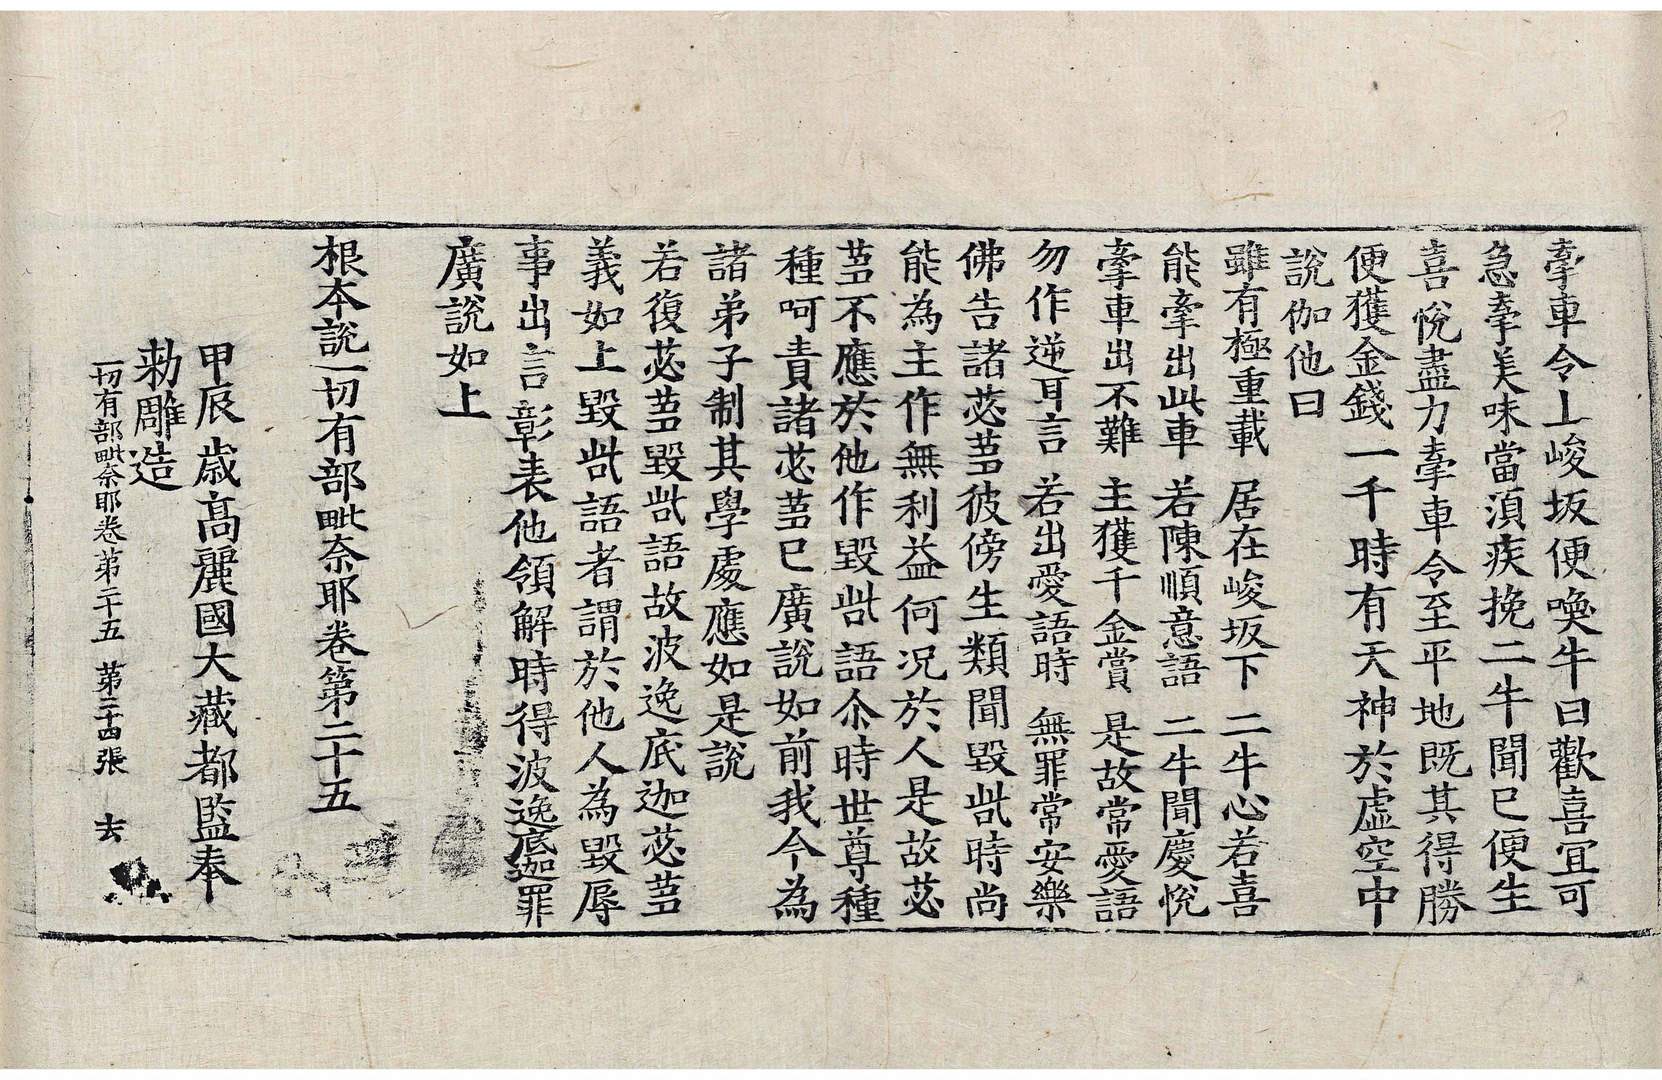 牽車令上峻坂便喚牛曰歡喜宜可
急牽美味當湏疾挽二牛聞已便生
喜悅盡力牽車令至平地既其得勝
便獲金錢一千時有天神於虛空中
說伽他曰
雖有極重載 居在峻坂下 二牛心若喜
能牽出此車 若陳順意語 二牛聞慶悅
牽車出不難 主獲千金賞 是故常愛語
勿作逆耳言 若出愛語時 無罪常安樂
佛告諸苾蒭彼傍生類聞毀呰時尚
能為主作無利益何況於人是故苾
蒭不應於他作毀呰語尒時世尊種
種呵責諸苾蒭已廣說如前我今為
諸弟子制其學處應如是說
若復苾蒭毀呰語故波逸底迦苾蒭
義如上毀呰語者謂於他人為毀辱
事出言彰表他領解時得波逸底迦罪
廣說如上
根本說一切有部毗奈耶卷第二十五
甲辰歲高麗國大藏都監奉
勅雕造
一切有部毗奈耶卷第二十五 第二十四張 去